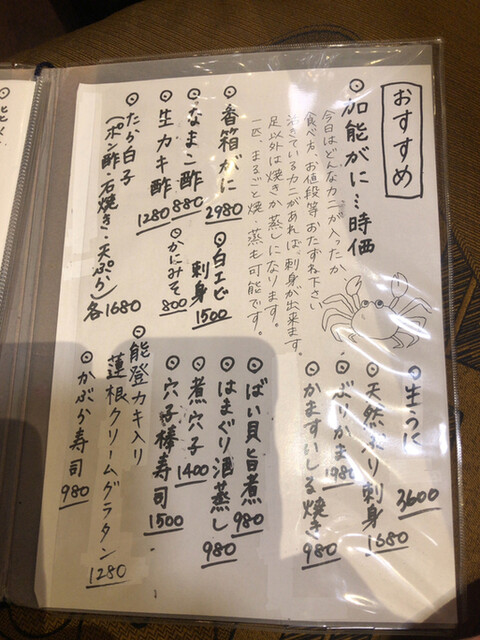 おすすめ
◎加能がに…時価
今日はどんなカニが入ったか
食べ方、お値段等おたずね下さい
活きているカニがあれば、刺身が出来ます。
足以外は焼きか蒸しになります。
一匹、まるごと焼・蒸も可能です。
◎香箱がに 2980
◎なまこ酢 880
◎生カキ酢 1280
◎たら白子
(ポン酢・石焼き・天ぷら)各1680
◎白エビ
刺身 1500
◎かにみそ 800
◎生うに 3600
◎天然ぶり刺身 1680
◎ぶりかま 1980
◎かますいしる焼き 980
◎ばい貝旨煮 980
◎はまぐり酒蒸し 980
◎煮穴子 1400
◎穴子棒寿司 1500
◎能登カキ入り
蓮根クリームグラタン 1280
◎かぶら寿司 980